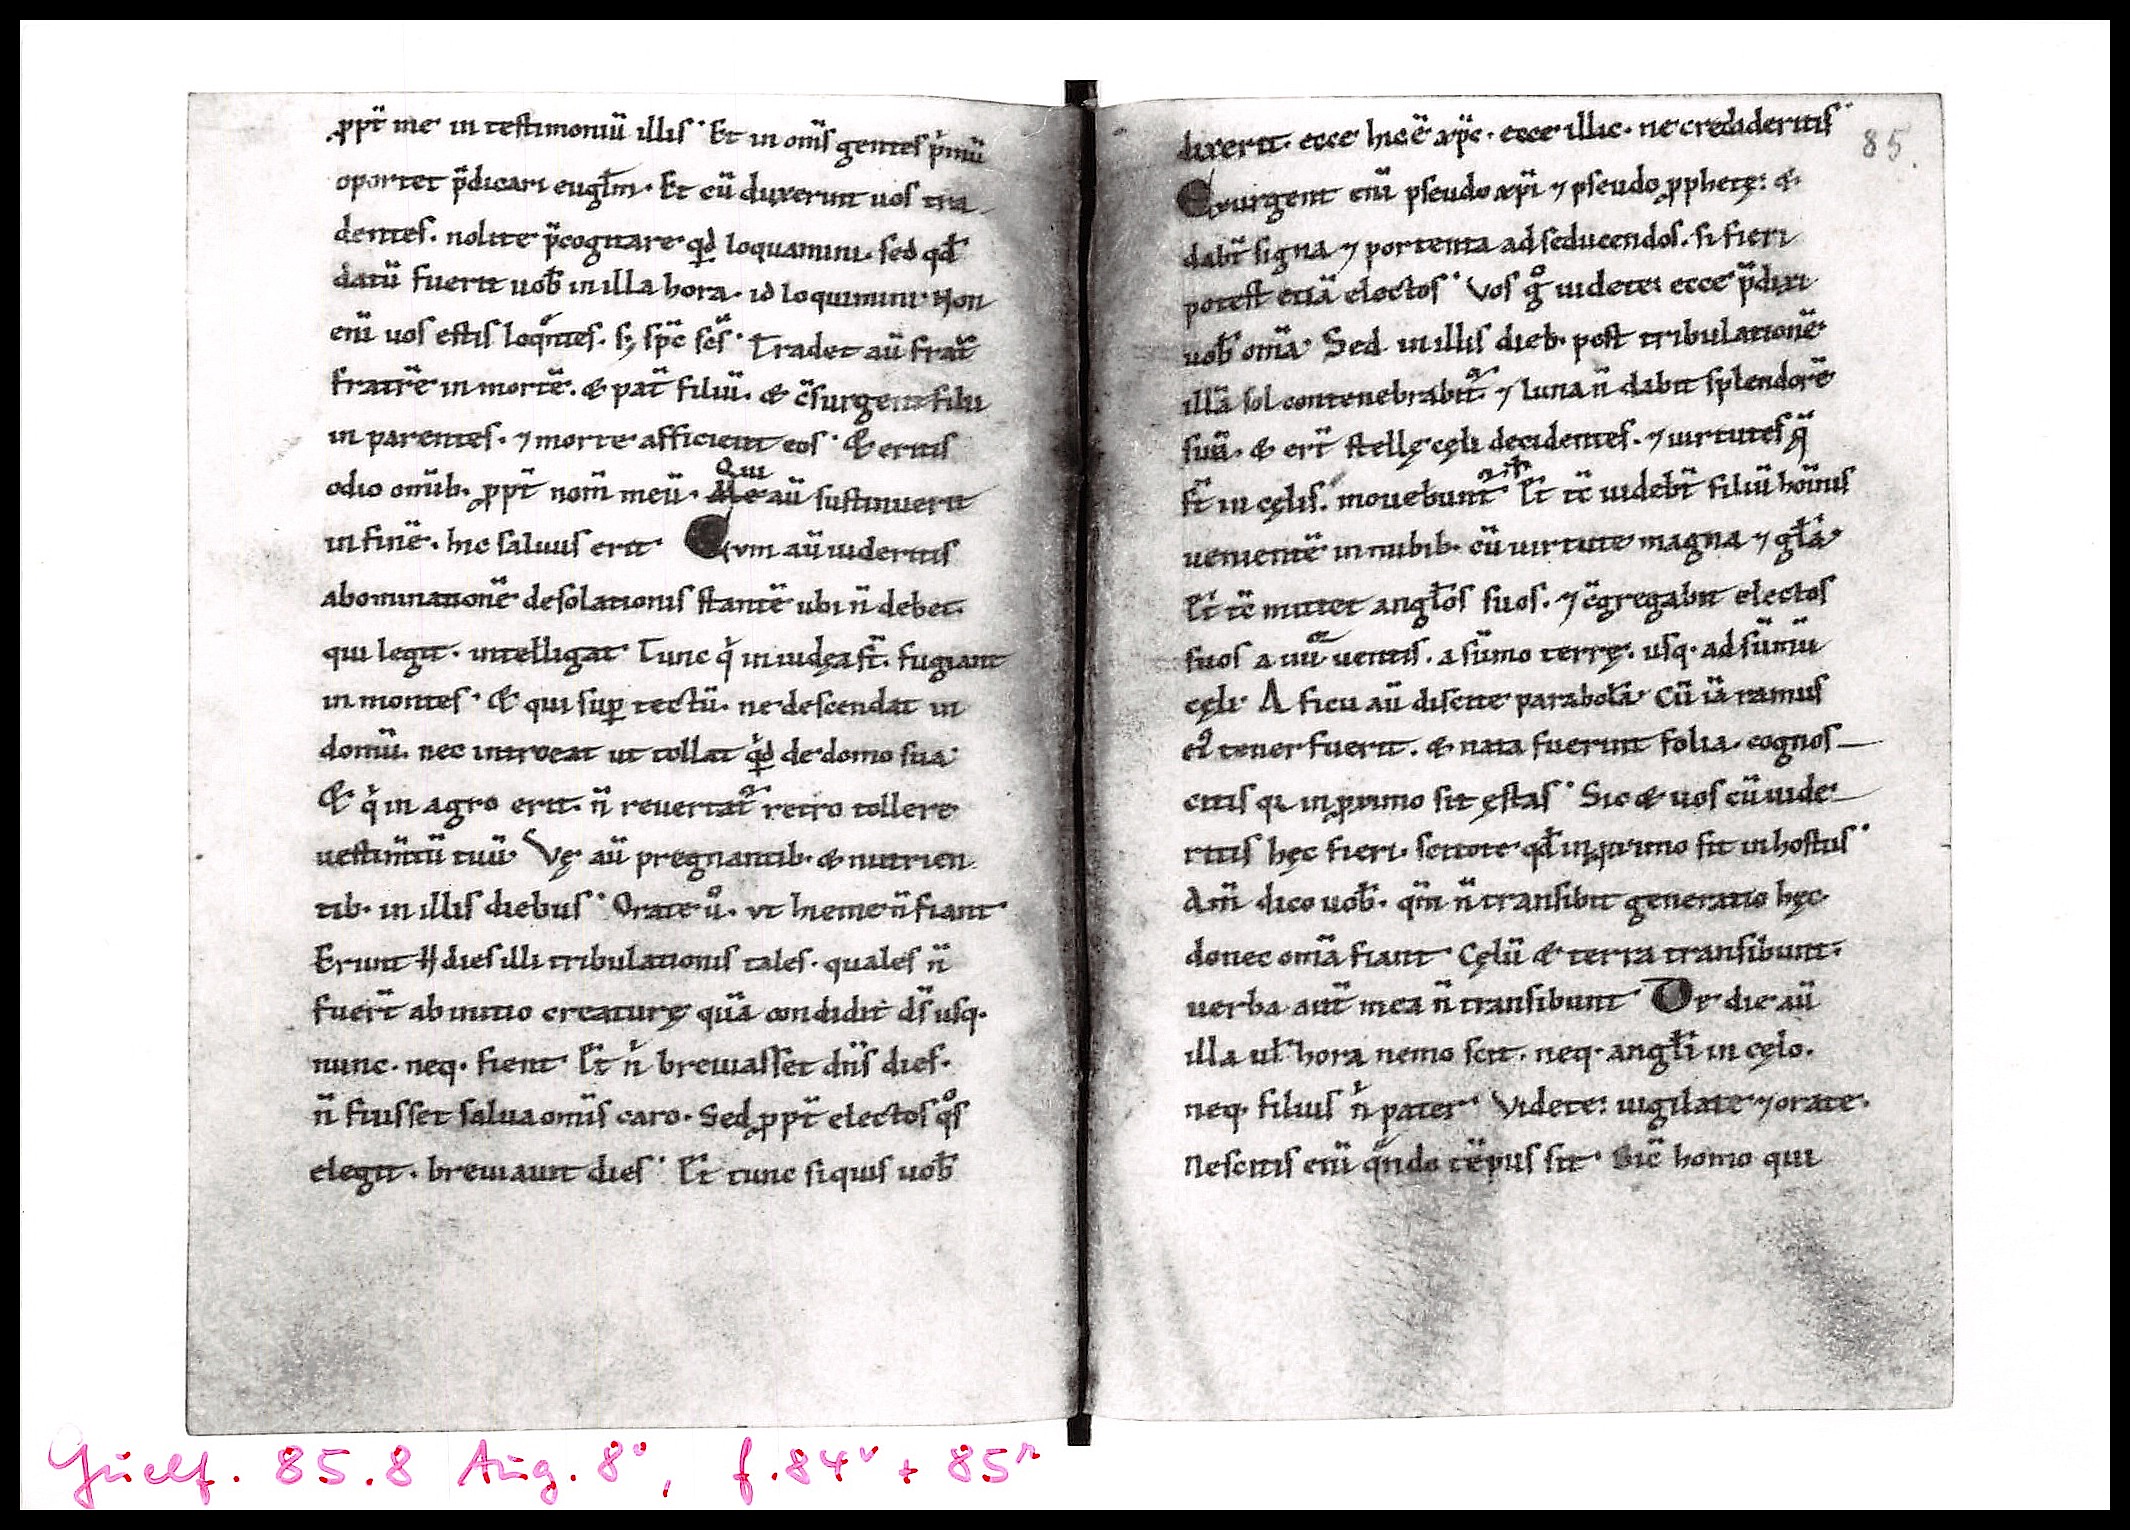 ꝓpt̄ me in testimoniū illis. Et in om̄s gentes pⁱmū
oportet p̄dicari eugl̄m. Et cū duxerint uos tra
dentes. nolite p̄cogitare qⁱd loquamini. sed qd̄
datū fuerit uob̄ in illa hora. id loquimini Non
eni̅ uos estis loqͣntes. sꝫ sp̄c sc̄s. Tradet aū frat̄
fratrē in mortē. & pat̄ filiū. & c̄surgent filii
in parentes. ⁊ morte afficient eos. Et eritis
odio omīb. ꝓpt̄ nom̄ meū. Qui aū sustinuerit
in finē. hic saluus erit. Cvm aū uideritis
abominationē desolationis stantē ubi n̄ debet.
qui legit. intelligat. Tunc qⁱ in iudęa st̄. fugiant
in montes. Et qui suꝑ tectū. ne descendat in
domū. nec introeat ut tollat qⁱd de domo sua
Et qⁱ in agro erit. n̄ reuertat᷑ retro tollere
uestim̄tū suū. Vę aū pregnantib. & nutrien
tib. in illis diebus. Orate ů. vt hieme n̄ fiant
Erunt H̄ dies illi tribulationis tales. quales n̄
fuer̄t ab initio creaturę quā condidit ds̄ usq.
nunc. neq. fient. Et nⁱ breuiasset dn̄s dies.
n̄ fuisset salua omīs caro. Sed ꝓpt̄ electos qͦs
elegit. breuiauit dies. Et tunc siquis uob̄
85.
dixerit. ecce hic ē xp̄c. ecce illic. ne credideritis
Exurgent eni̅ pseudo xp̄i ⁊ pseudo ꝓphetę: &
dabt̄ signa ⁊ portenta ad seducendos. si fieri
potest etiā electos. Vos gͦ uidete: ecce p̄dixi
uob̄ om̄a Sed in illis dieb. post tribulationē
illā sol contenebrabit᷑ ⁊ luna n̄ dabit splendorē
suū. & ert̄ stellę cęli decidentes. ⁊ uirtutes q̄
st̄ in cęlis. mouebunt᷑ Et tc̄ uidebt̄ filiū hoīnis
uenientē in nubib. cū uirtute magna ⁊ gl̄a
Et tc̄ mittet angl̄os suos. ⁊ c̄gregabit electos
suos a iiii ventis. a sūmo terrę. usq. ad sūmū
cęli. A ficu aū discite parabolā Cū iā ramus
eiꝰ tener fuerit. & nata fuerint folia. cognos
citis qi in ꝓximo sit ęstas. Sic & uos cū uide
ritis hęc fieri. scitote qd̄ in ꝓximo sit in hostiis
Am̄ dico uob̄. qm̄ n̄ transibit generatio hęc
donec om̄a fiant Cęlū & terra transibunt.
uerba aut̄ mea n̄ transibunt De die aū
illa ul̄ hora nemo scit. neq. angl̄i in cęlo.
neq. filius nⁱ pater. Videte: uigilate ⁊ orate.
Nescitis eni̅ qͣndo tēpus sit. Sic̄ homo qui
Guelf. 85.8 Aug. 8°, f. 84ᵛ + 85ʳ